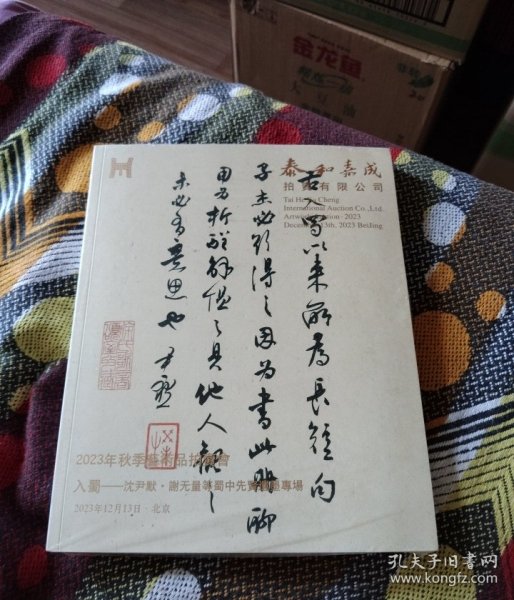 泰和嘉成
拍賣有限公司
Tai He Jia Cheng
International Auction Co.,Ltd.
December 13th, 2023 Beijing
右入蜀以來所為長短句
子杰必欲得之因為書此非聊
用乃析酲解愠之具他人觀之
未必有意思也 尹默
2023年秋季藝術品拍賣會
入蜀——沈尹默·謝无量等蜀中先賢翰墨專場
2023年12月13日·北京
金龙鱼
大豆油
孔夫子旧书网
www.kongfz.com